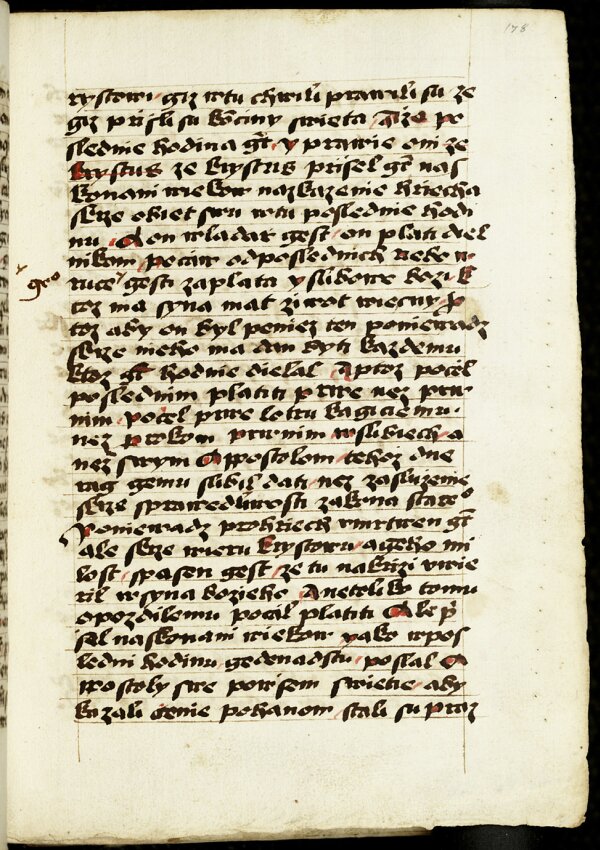 178
rystowi giz wtu chwili prawili su ze
giz prisli su konciny swieta a gize po
slednie hodina gt y prawie oni ze
krystus ze krystus prisel gt nas
konani wiekow nazkazenie hriecha
skrze obiet swu wtu poslednie hodi
nu A on wladar gest on plati diel
nikom pocaw odposlednich nebo w
ruce gest zaplata y slibowe bozi k
toz ma syna mat ziwot wieczny p
toz aby on byl peniez ten poniewadz
skrze nieho ma dan byti kazdemu
ktoz gt hodnie dielal A ptoz pocel
poslednim platiti prwe nez prw
nim pocel prwe lotru kagiciemu
nez prokom prwnim wslibiech a
nez swym Appostolom tehoz dne
rag gemu slibil dati nez zasluzenie
skrze sprawedliwosti zakona stareo
Poniewadz prohriech vmrtwen gt
ale skrze wieru krystowu a geho mi
lost spasen gest ze tu nakrizi vwie
ril wsyna bozieho A netoliko tomu
opozdilemu pocel platiti Ale pri
sel naskonani wiekow yako wpos
ledni hodinu gedenadstu poslal A
postoly swe powsem swietie aby
kazali genie pohanom stali su praz
geo